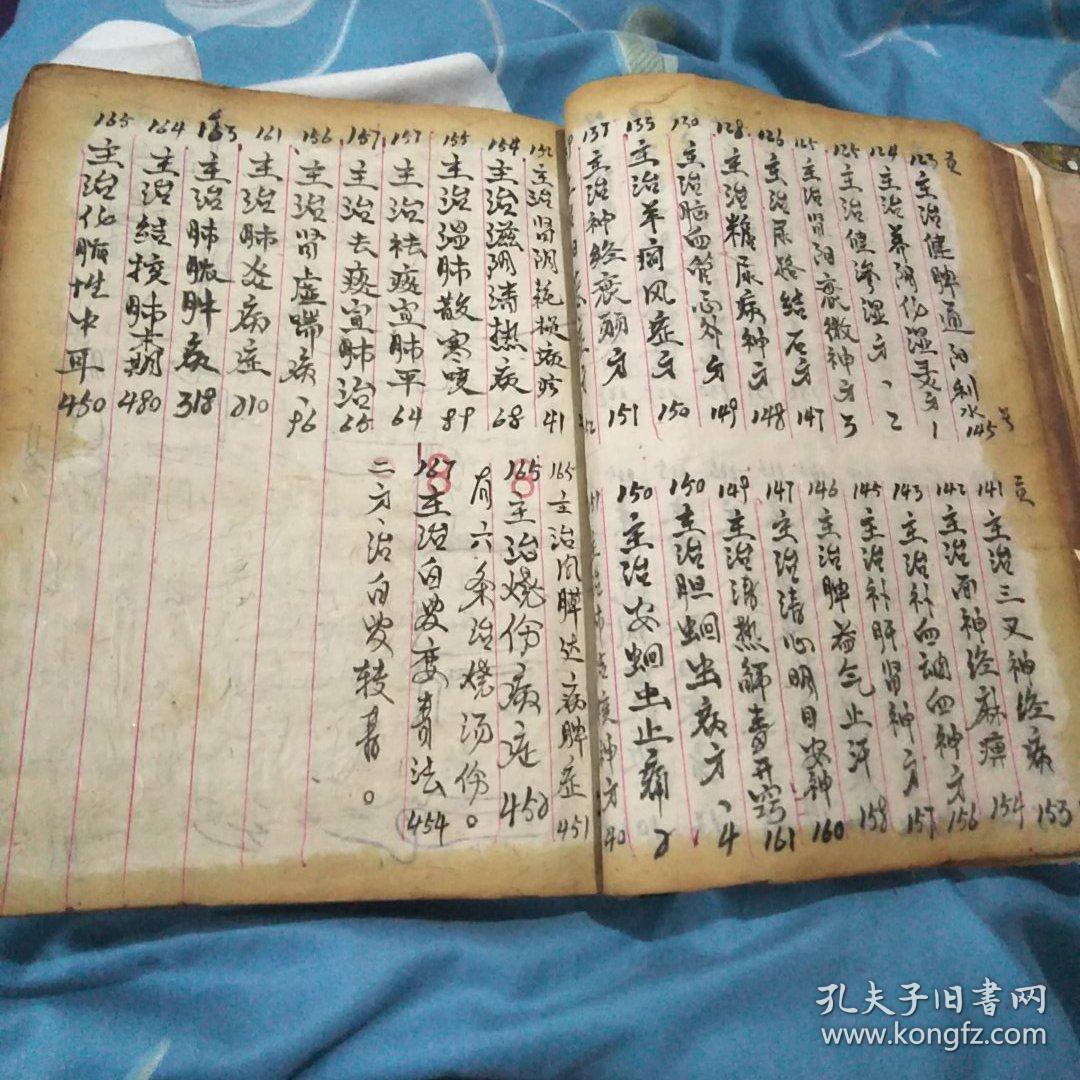 页
123 主治健脾通阳利水 145 号
124 主治养阴化湿 方 1
125 主治健渗湿方、2
125 主治肾阳衰微神方 3
126 主治尿路结石方 147
128 主治糖尿病神方 148
130 主治脑血管意外方 149
135 主治羊痫风症方 150
137 主治神经衰 方 151
页
141 主治三叉神经病 153
142 主治面神经麻痹 154
143 主治补血调血神方 156
145 主治补肝肾神方 157
146 主治脾益气止汗 158
147 主治清心明目安神 160
149 主治清热解毒开窍 161
150 主治胆蛔虫病方、4
150 主治安蛔虫止痛 2
神方 40
152 主治肾阴耗损病 41
154 主治滋阴清热病 68
155 主治温肺散寒咳 89
157 主治祛痰宣肺平 64
157 主治去痰宣肺治 65
156 主治肾虚喘病、96
161 主治肺炎病症 210
163 主治肺脓肿病 318
164 主治结核肺末期 480
165 主治化脓性中耳 450
165 主治 病脾症 451
165 主治烧伤病症 452
有六条治烧汤伤。
167 主治白发变青法 454
二方、治白发转青。
8
8
孔夫子旧书网
www.kongfz.com